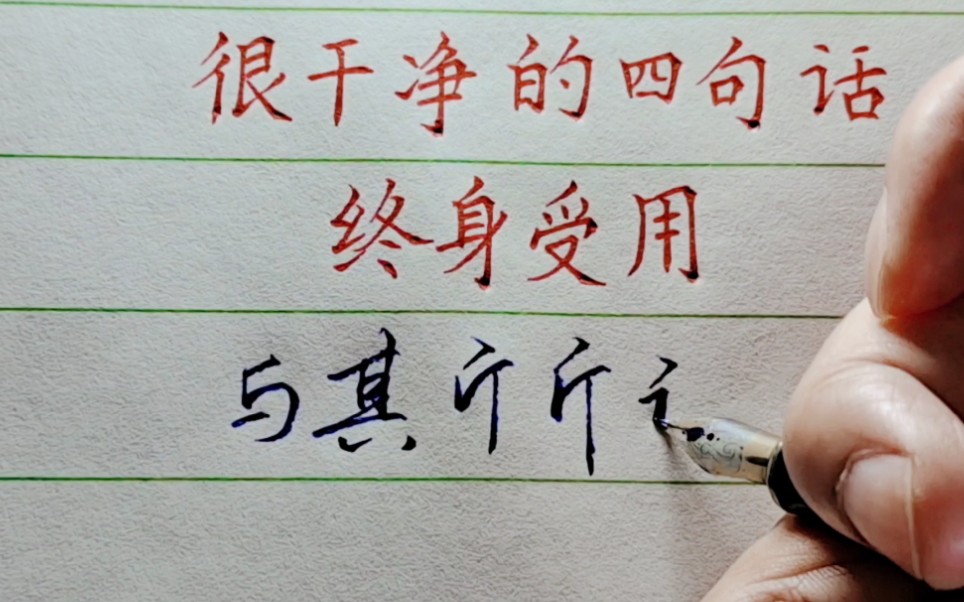 很干净的四句话
终身受用
与其斤斤